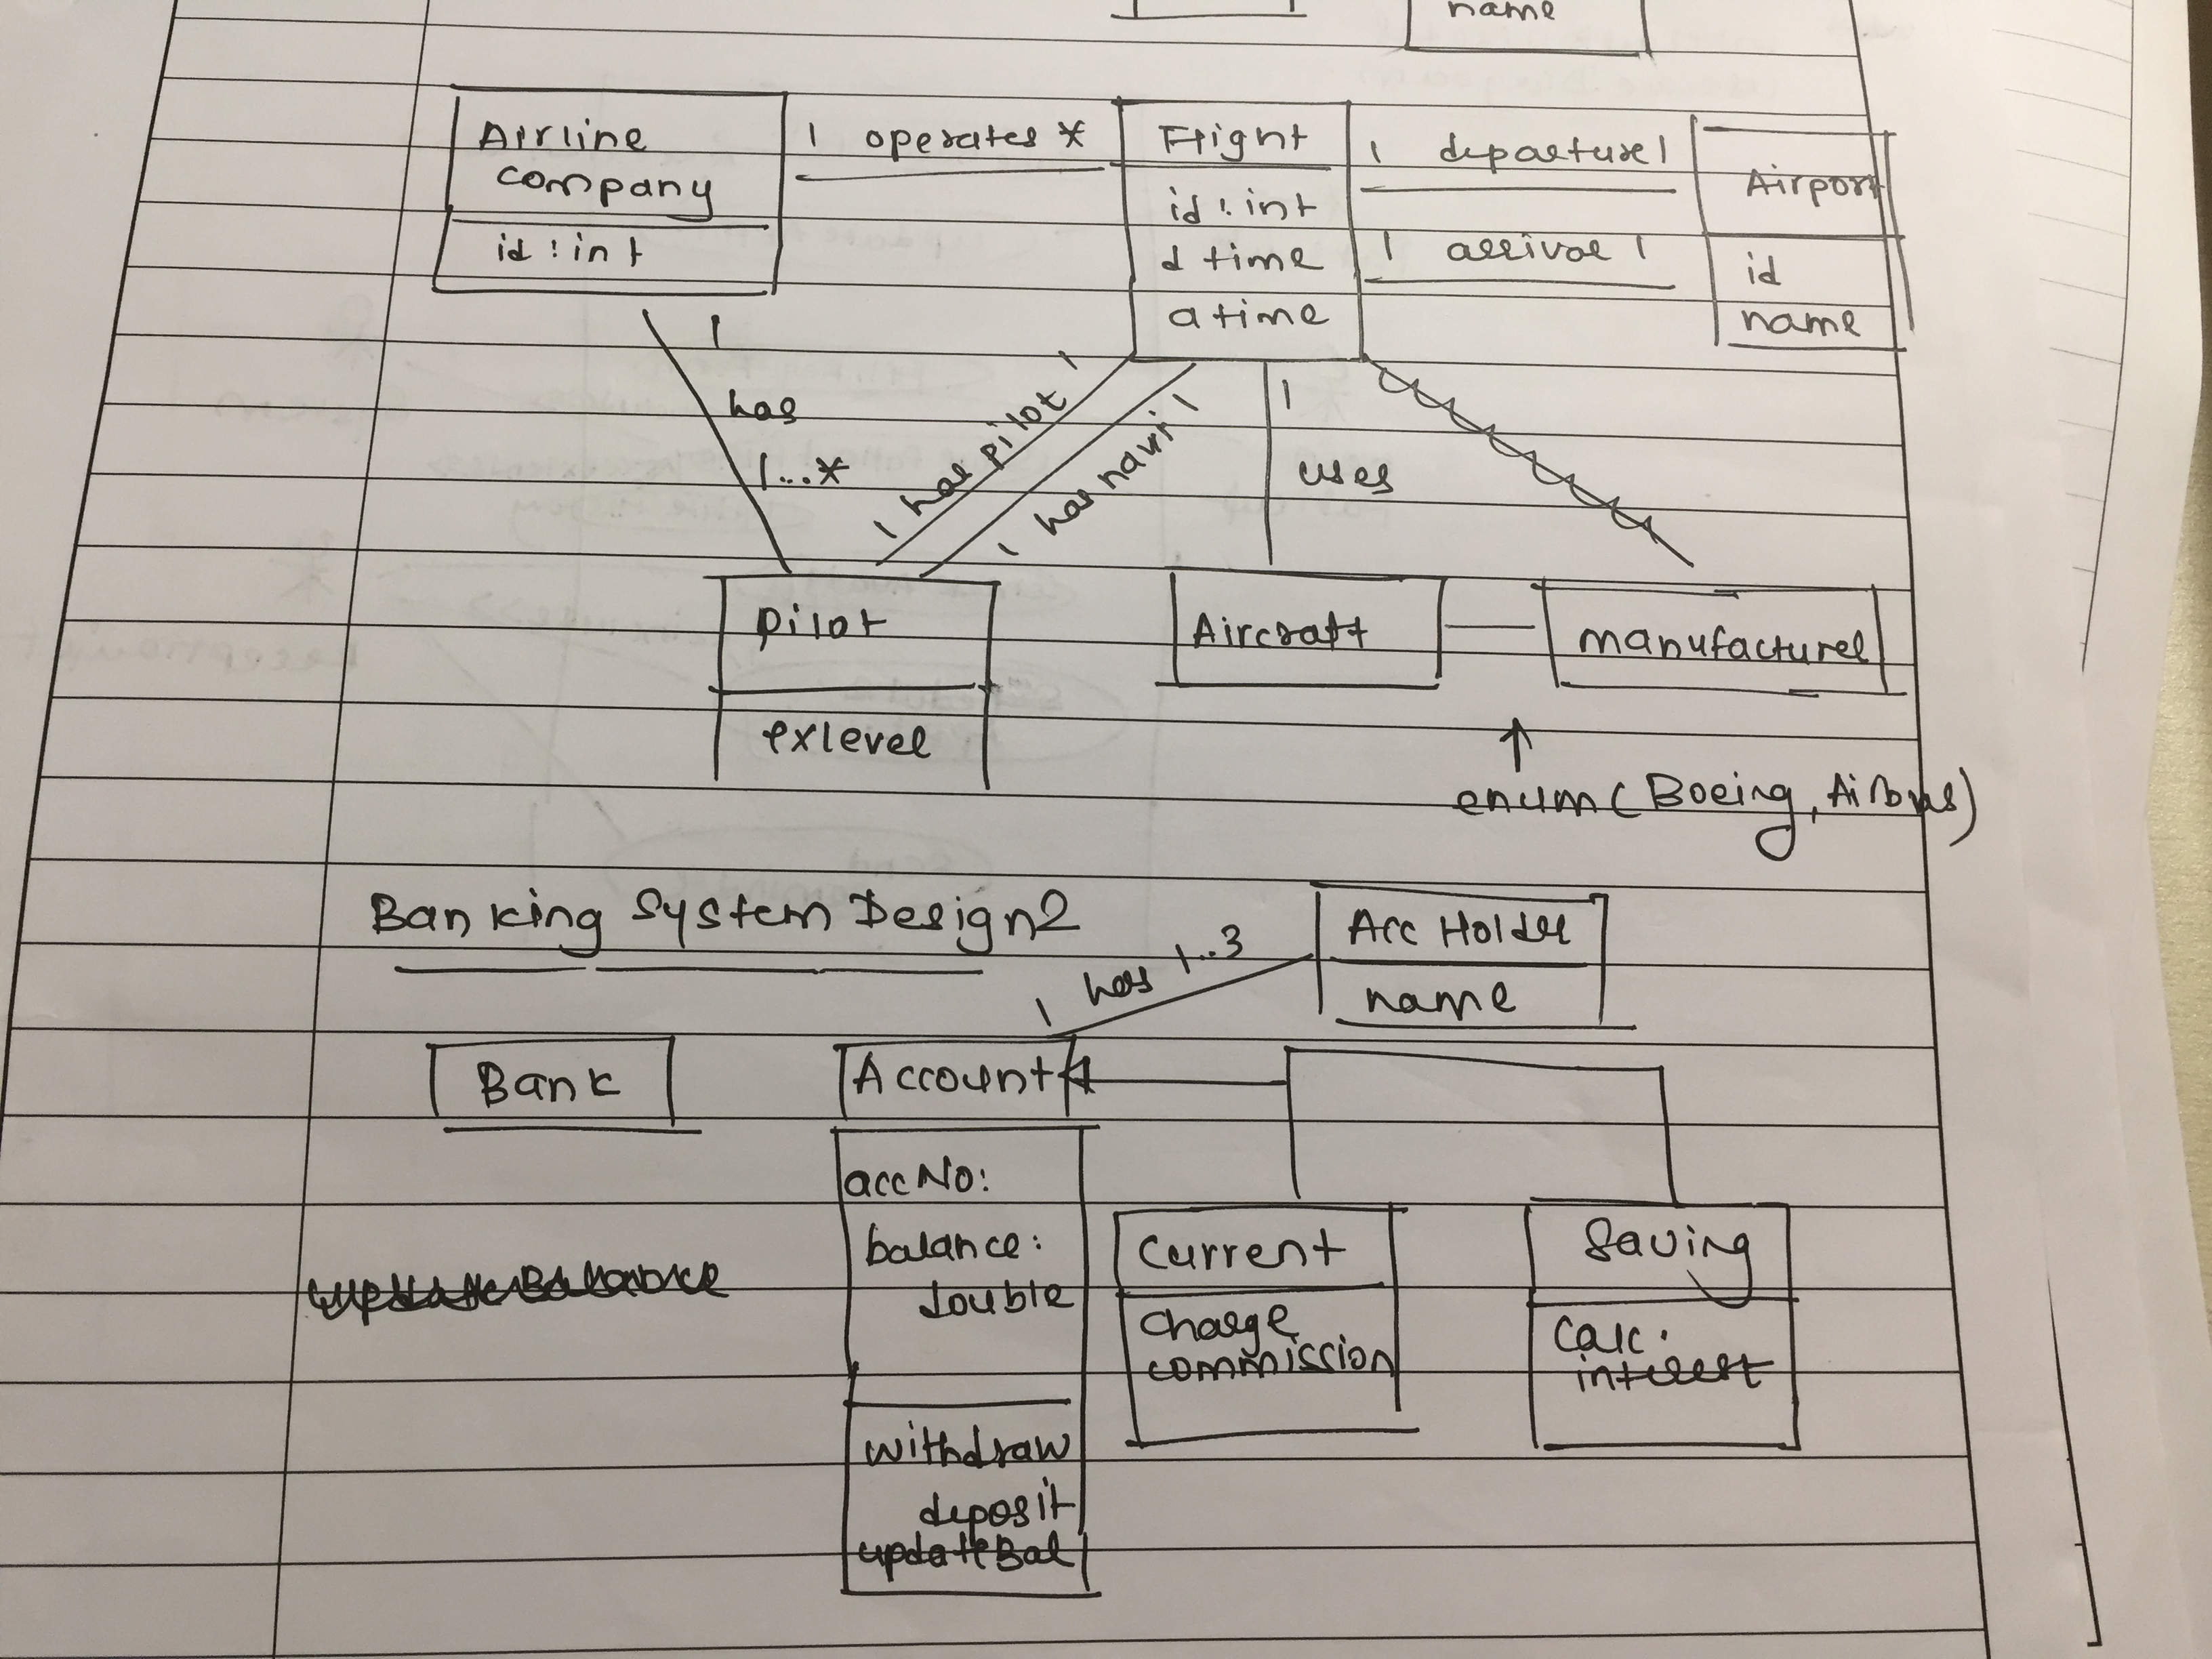 name
Airline
company
id : int
1 operates *
Flight
id : int
d time
a time
1 departure 1
1 arrival 1
Airport
id
name
1
has
1...*
1 has pilot 1
1 has navi 1
1
uses
Pilot
exlevel
Aircraft
manufacturer
enum ( Boeing, Airbus )
Banking System Design 2
Acc Holder
name
1 has 1..3
Bank
Account
accNo:
balance:
double
withdraw
deposit
updateBal
Current
Charge
commission
Saving
Calc.
interest